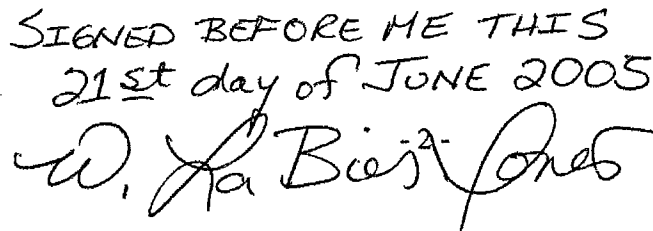 SIGNED BEFORE ME THIS
21st day of JUNE 2005
W. La Bies Jones
-2-